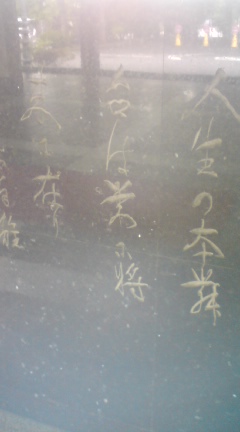 人生の本舞
台は常に将
来に在り